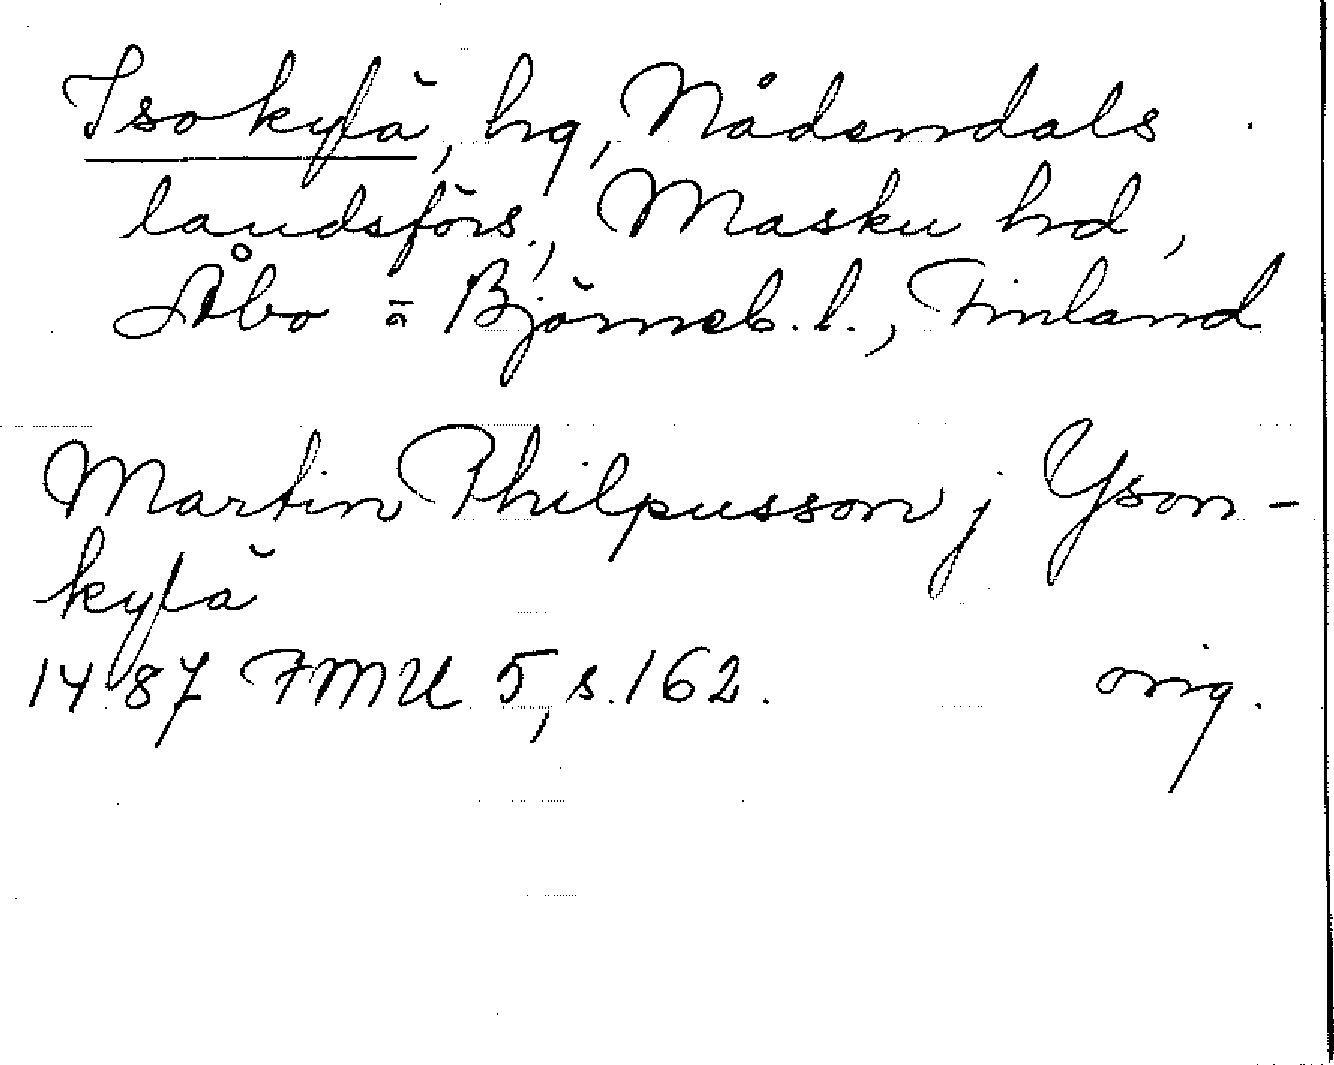 Isokylä, hg, Nådendals
landsförs., Masku hd,
Åbo o. Björneb. l., Finland
Martin Philpusson j Yson-
kylä
1487 FMU 5, s. 162. orig.